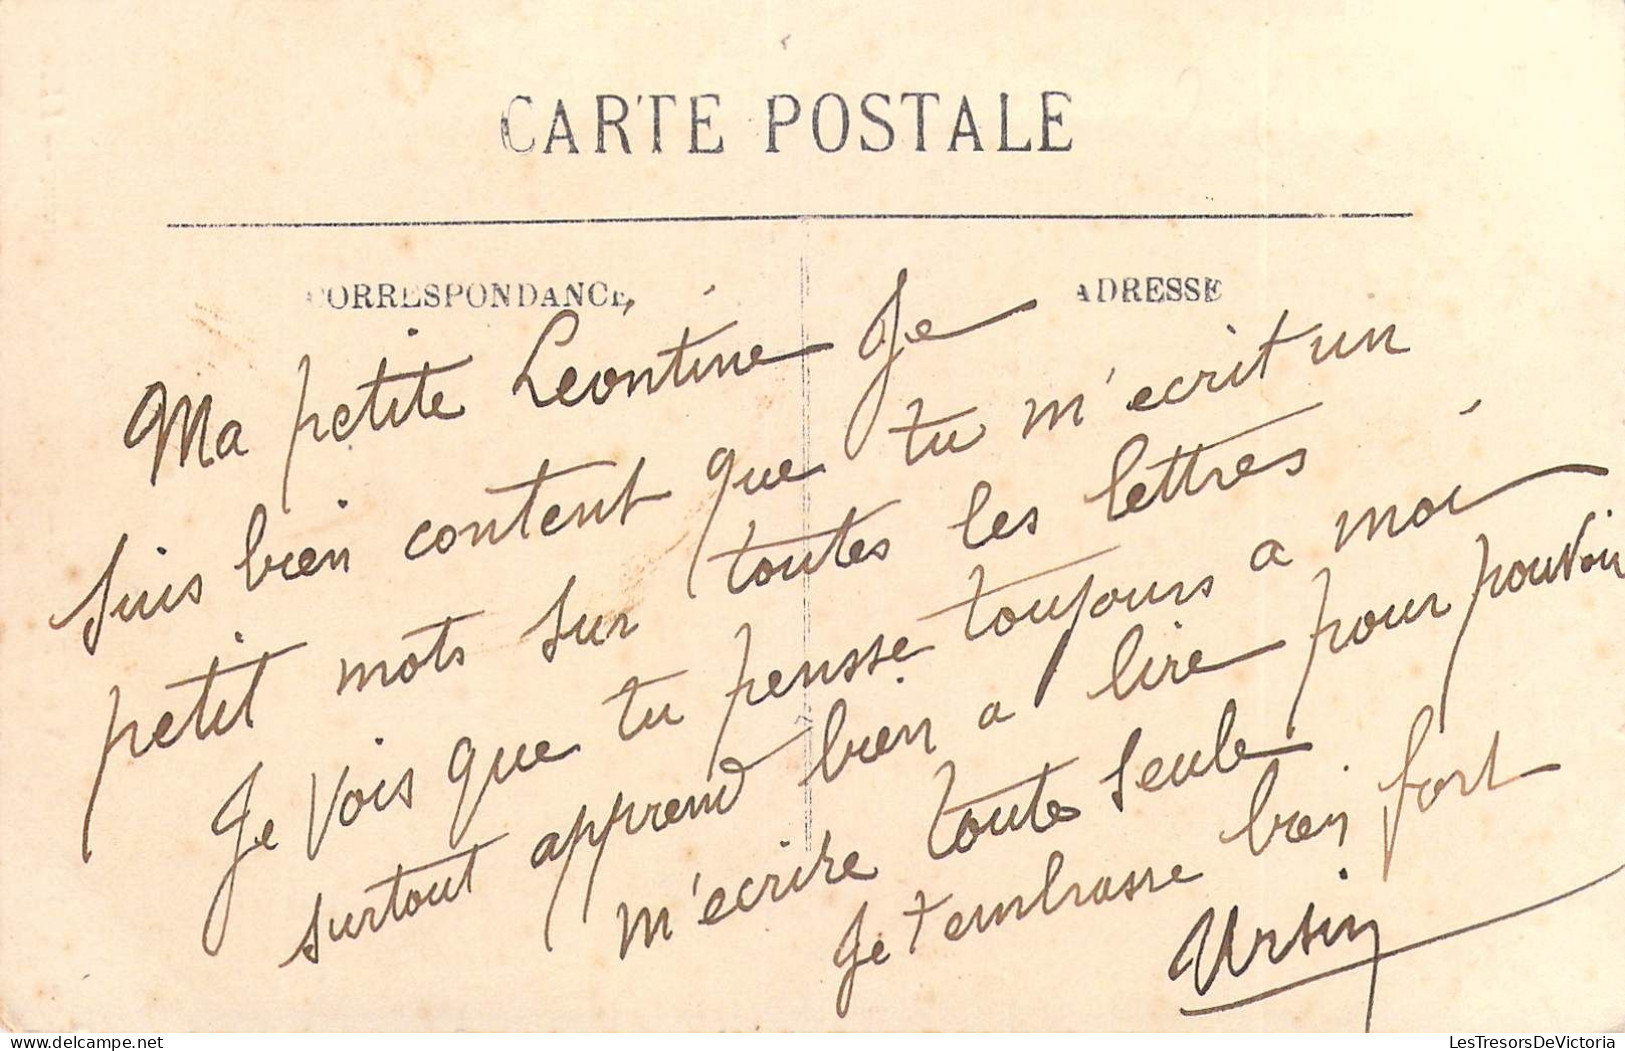 CARTE POSTALE
CORRESPONDANCE
ADRESSE
Ma petite Leontine Je
suis bien content que tu m'ecrit un
petit mots sur toutes les lettres
Je vois que tu pensse toujours a moi
surtout apprend bien a lire pour pouvoir
m'ecrire toute seule
Je t'embrasse bien fort
Ursin
delcampe.net
LesTresorsDeVictoria